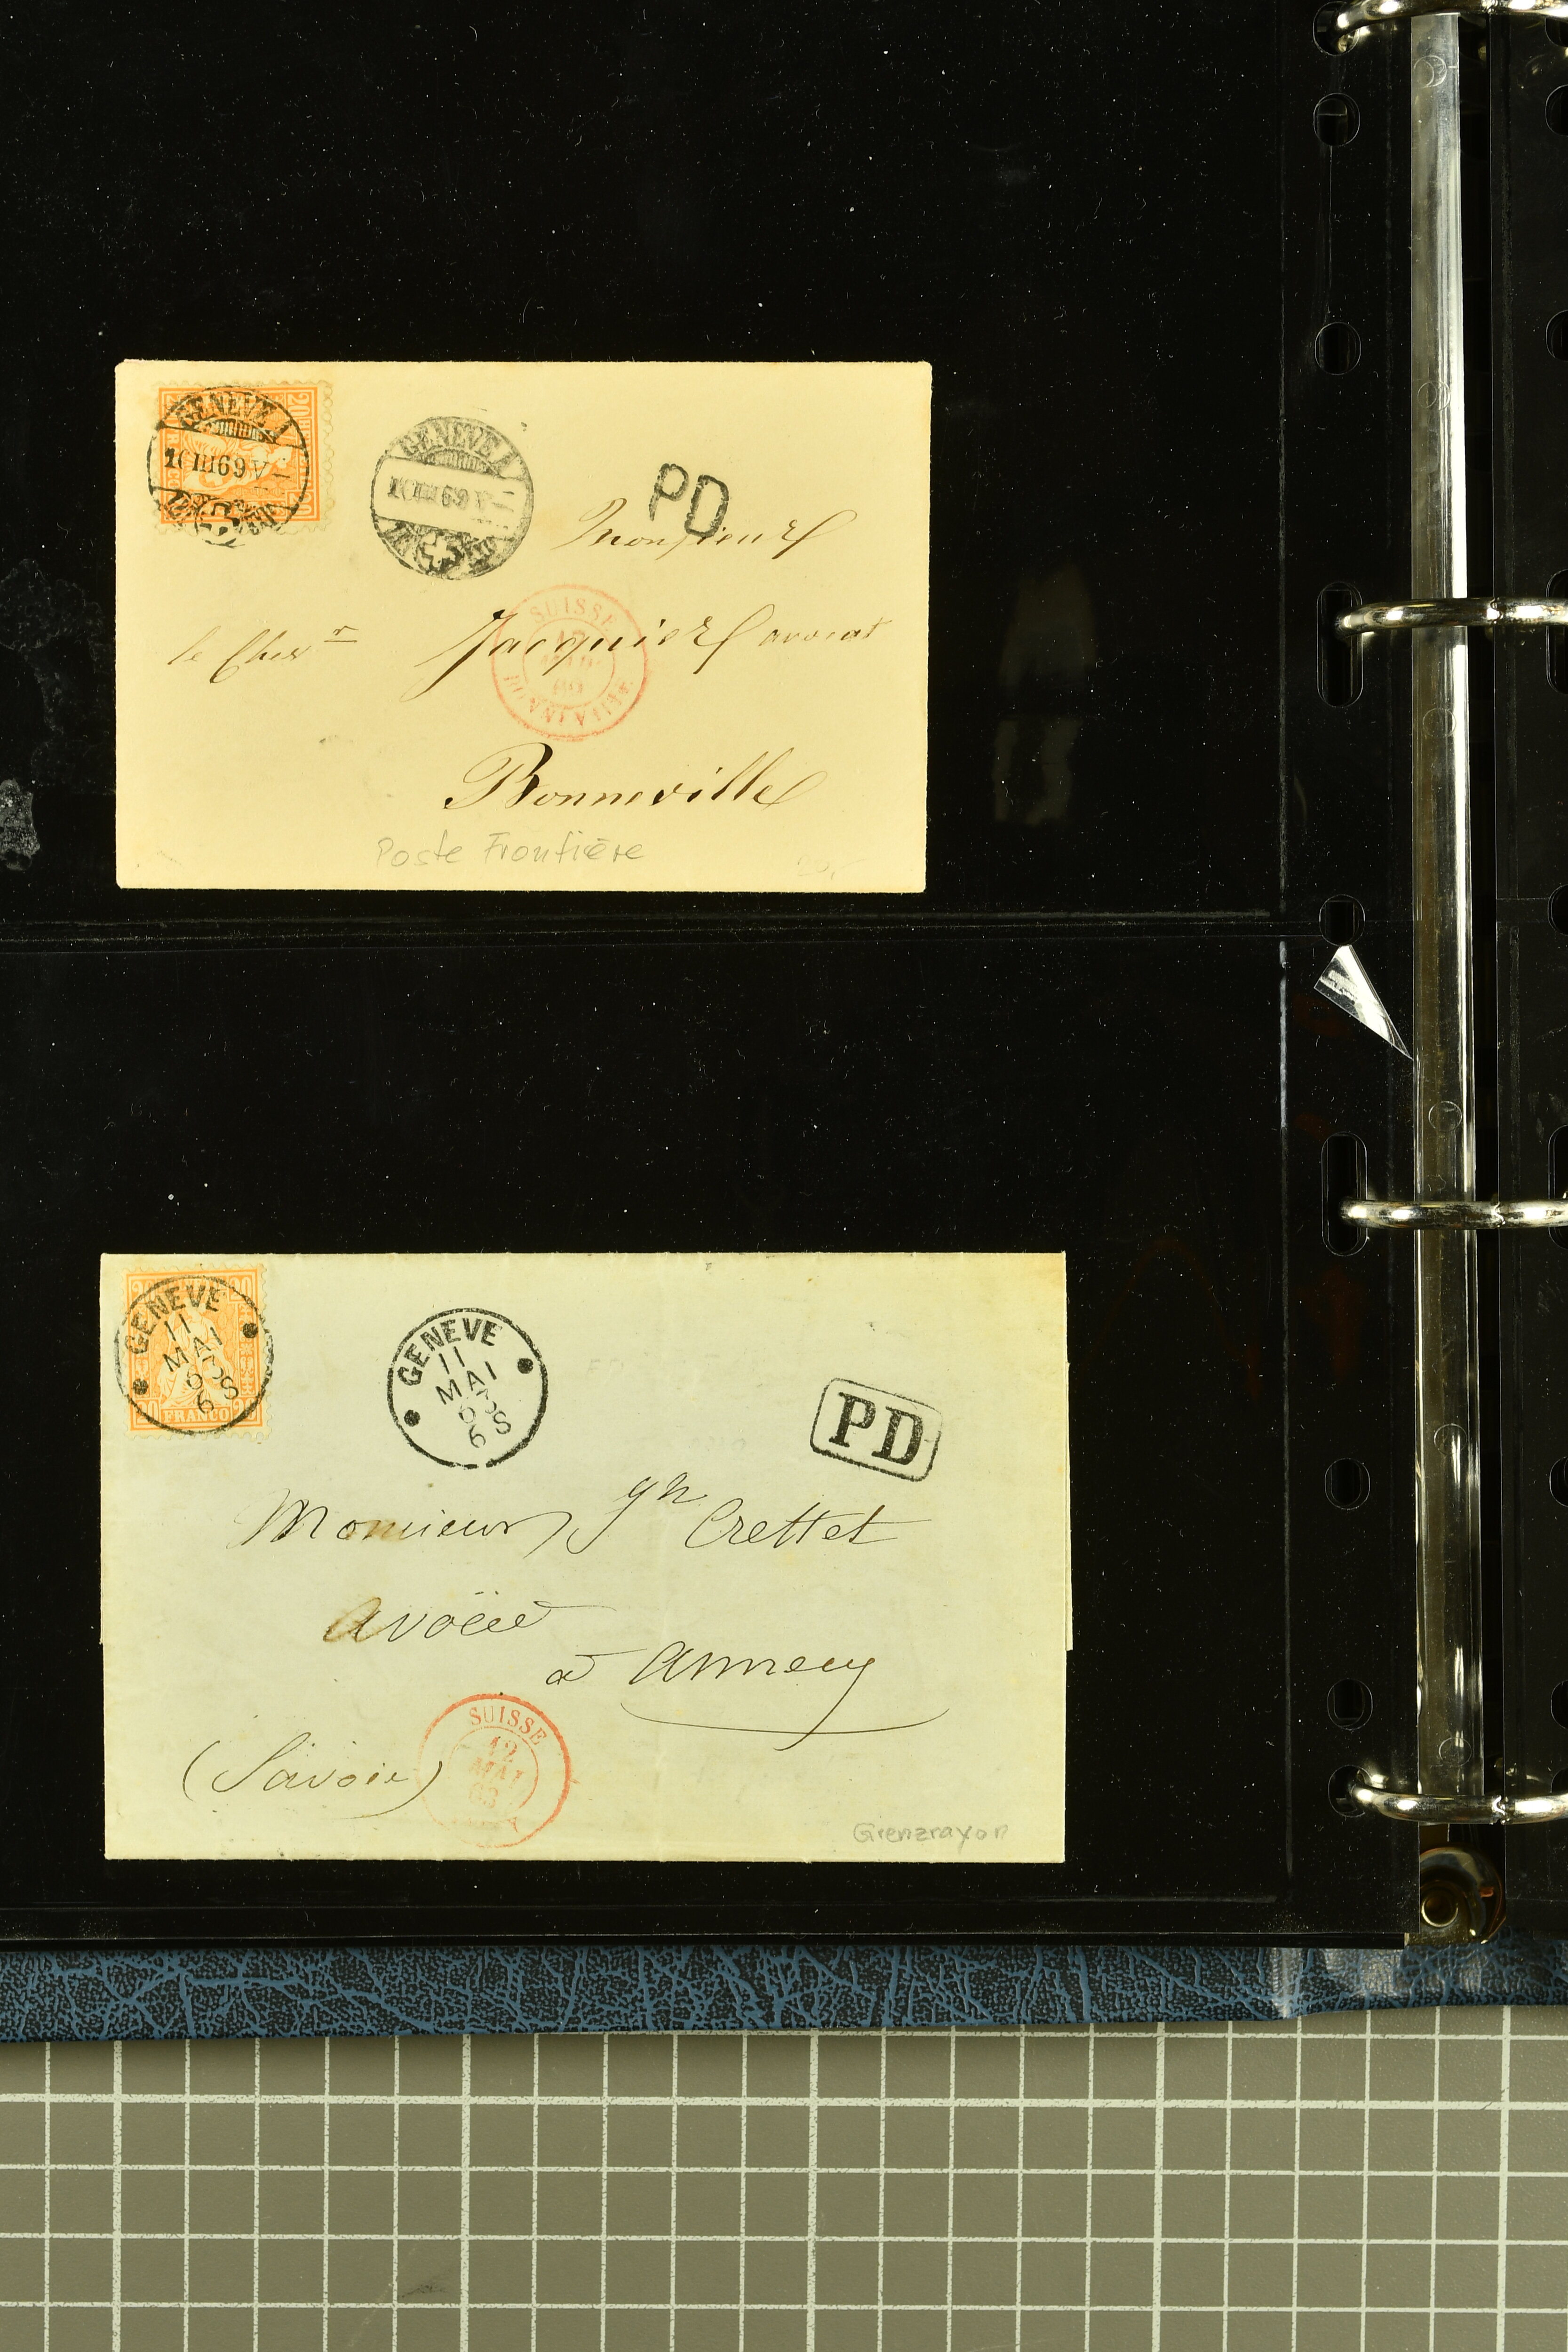 GENEVE
GENEVE
PD
Monsieur
le Chevr Jacquier avocat
SUISSE
BONNEVILLE
Bonneville
Poste Frontière
GENEVE
11
MAI
6
20 FRANCO
GENEVE
11
MAI
6
PD
Monsieur Crettet
avoüé
à Annecy
(Savoie)
SUISSE
12
MAI
Grenzrayon